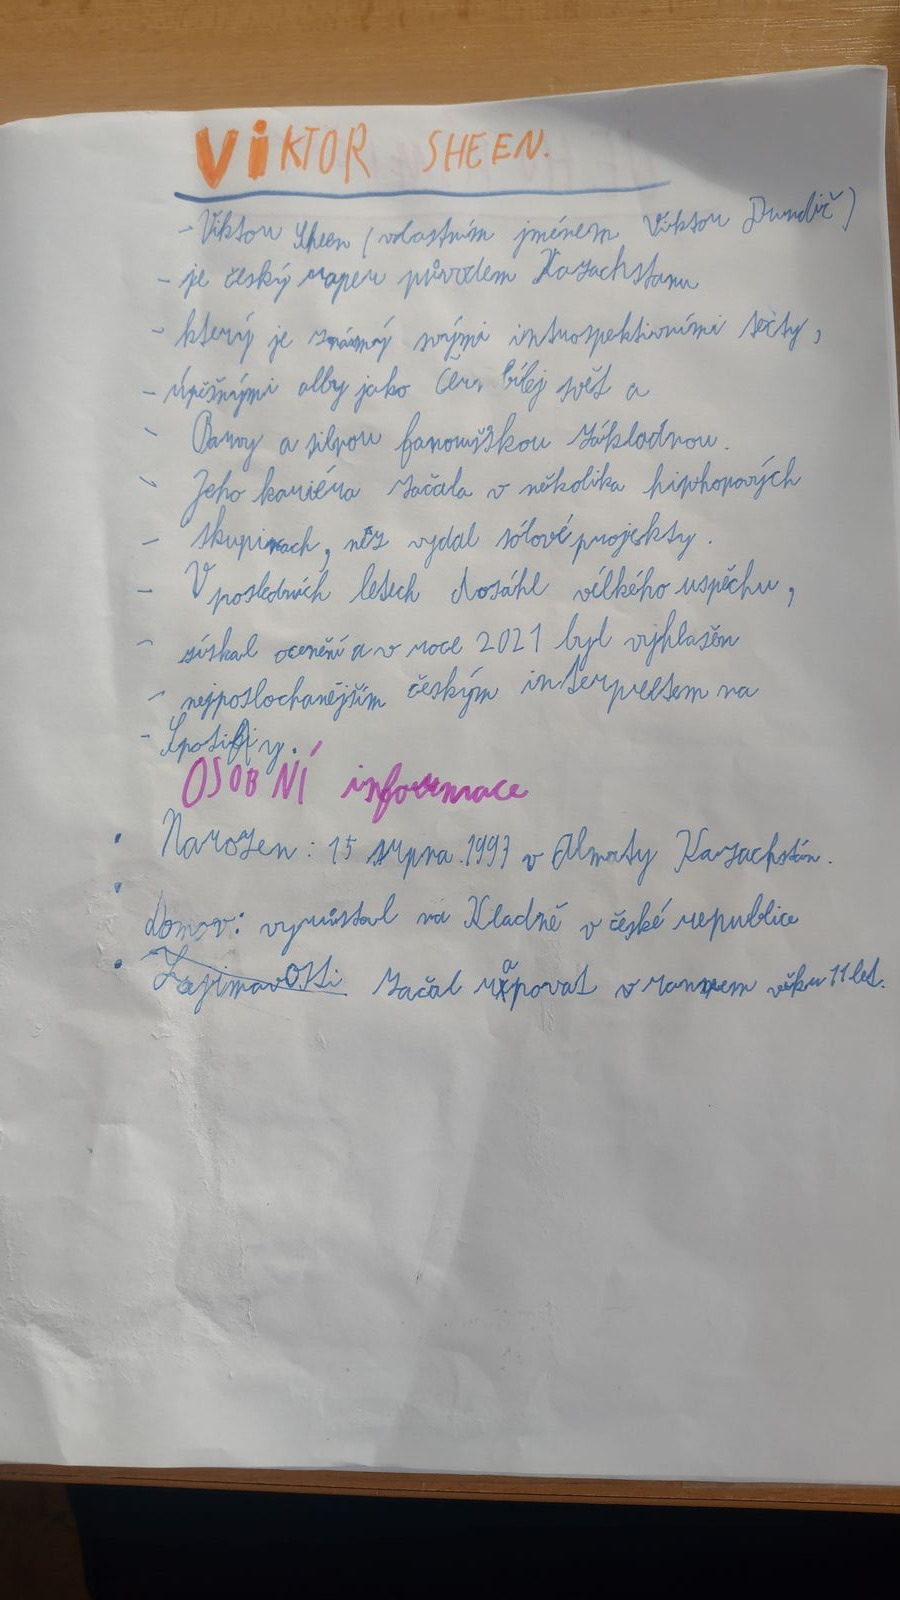 VIKTOR SHEEN.
- Viktor Sheen (vlastním jménem Viktor Dundič)
- je český raper původem Kazachstanu
- který je známý svými introspektivními texty,
- úpěšnými alby jako Čern bílej svět a
- Barvy a silnou fanouškou základnou.
- Jeho kariéra začala v několika hiphopových
- skupinach, něž vydal sólové projekty.
- V posledních letech dosáhl vélkého uspěchu,
- získal ocenění a v roce 2021 byl vyhlašěn
- nejposlochanějším českým interpretem na
- Spotifiy.
OSOBNÍ informace
• Narozen: 15 srpna.1997 v Almaty Kazachstán.
•
Domov: vyrůstal na Kladně v české republice
• Zajimavosti začal rapovat v rannem věku 11 let.